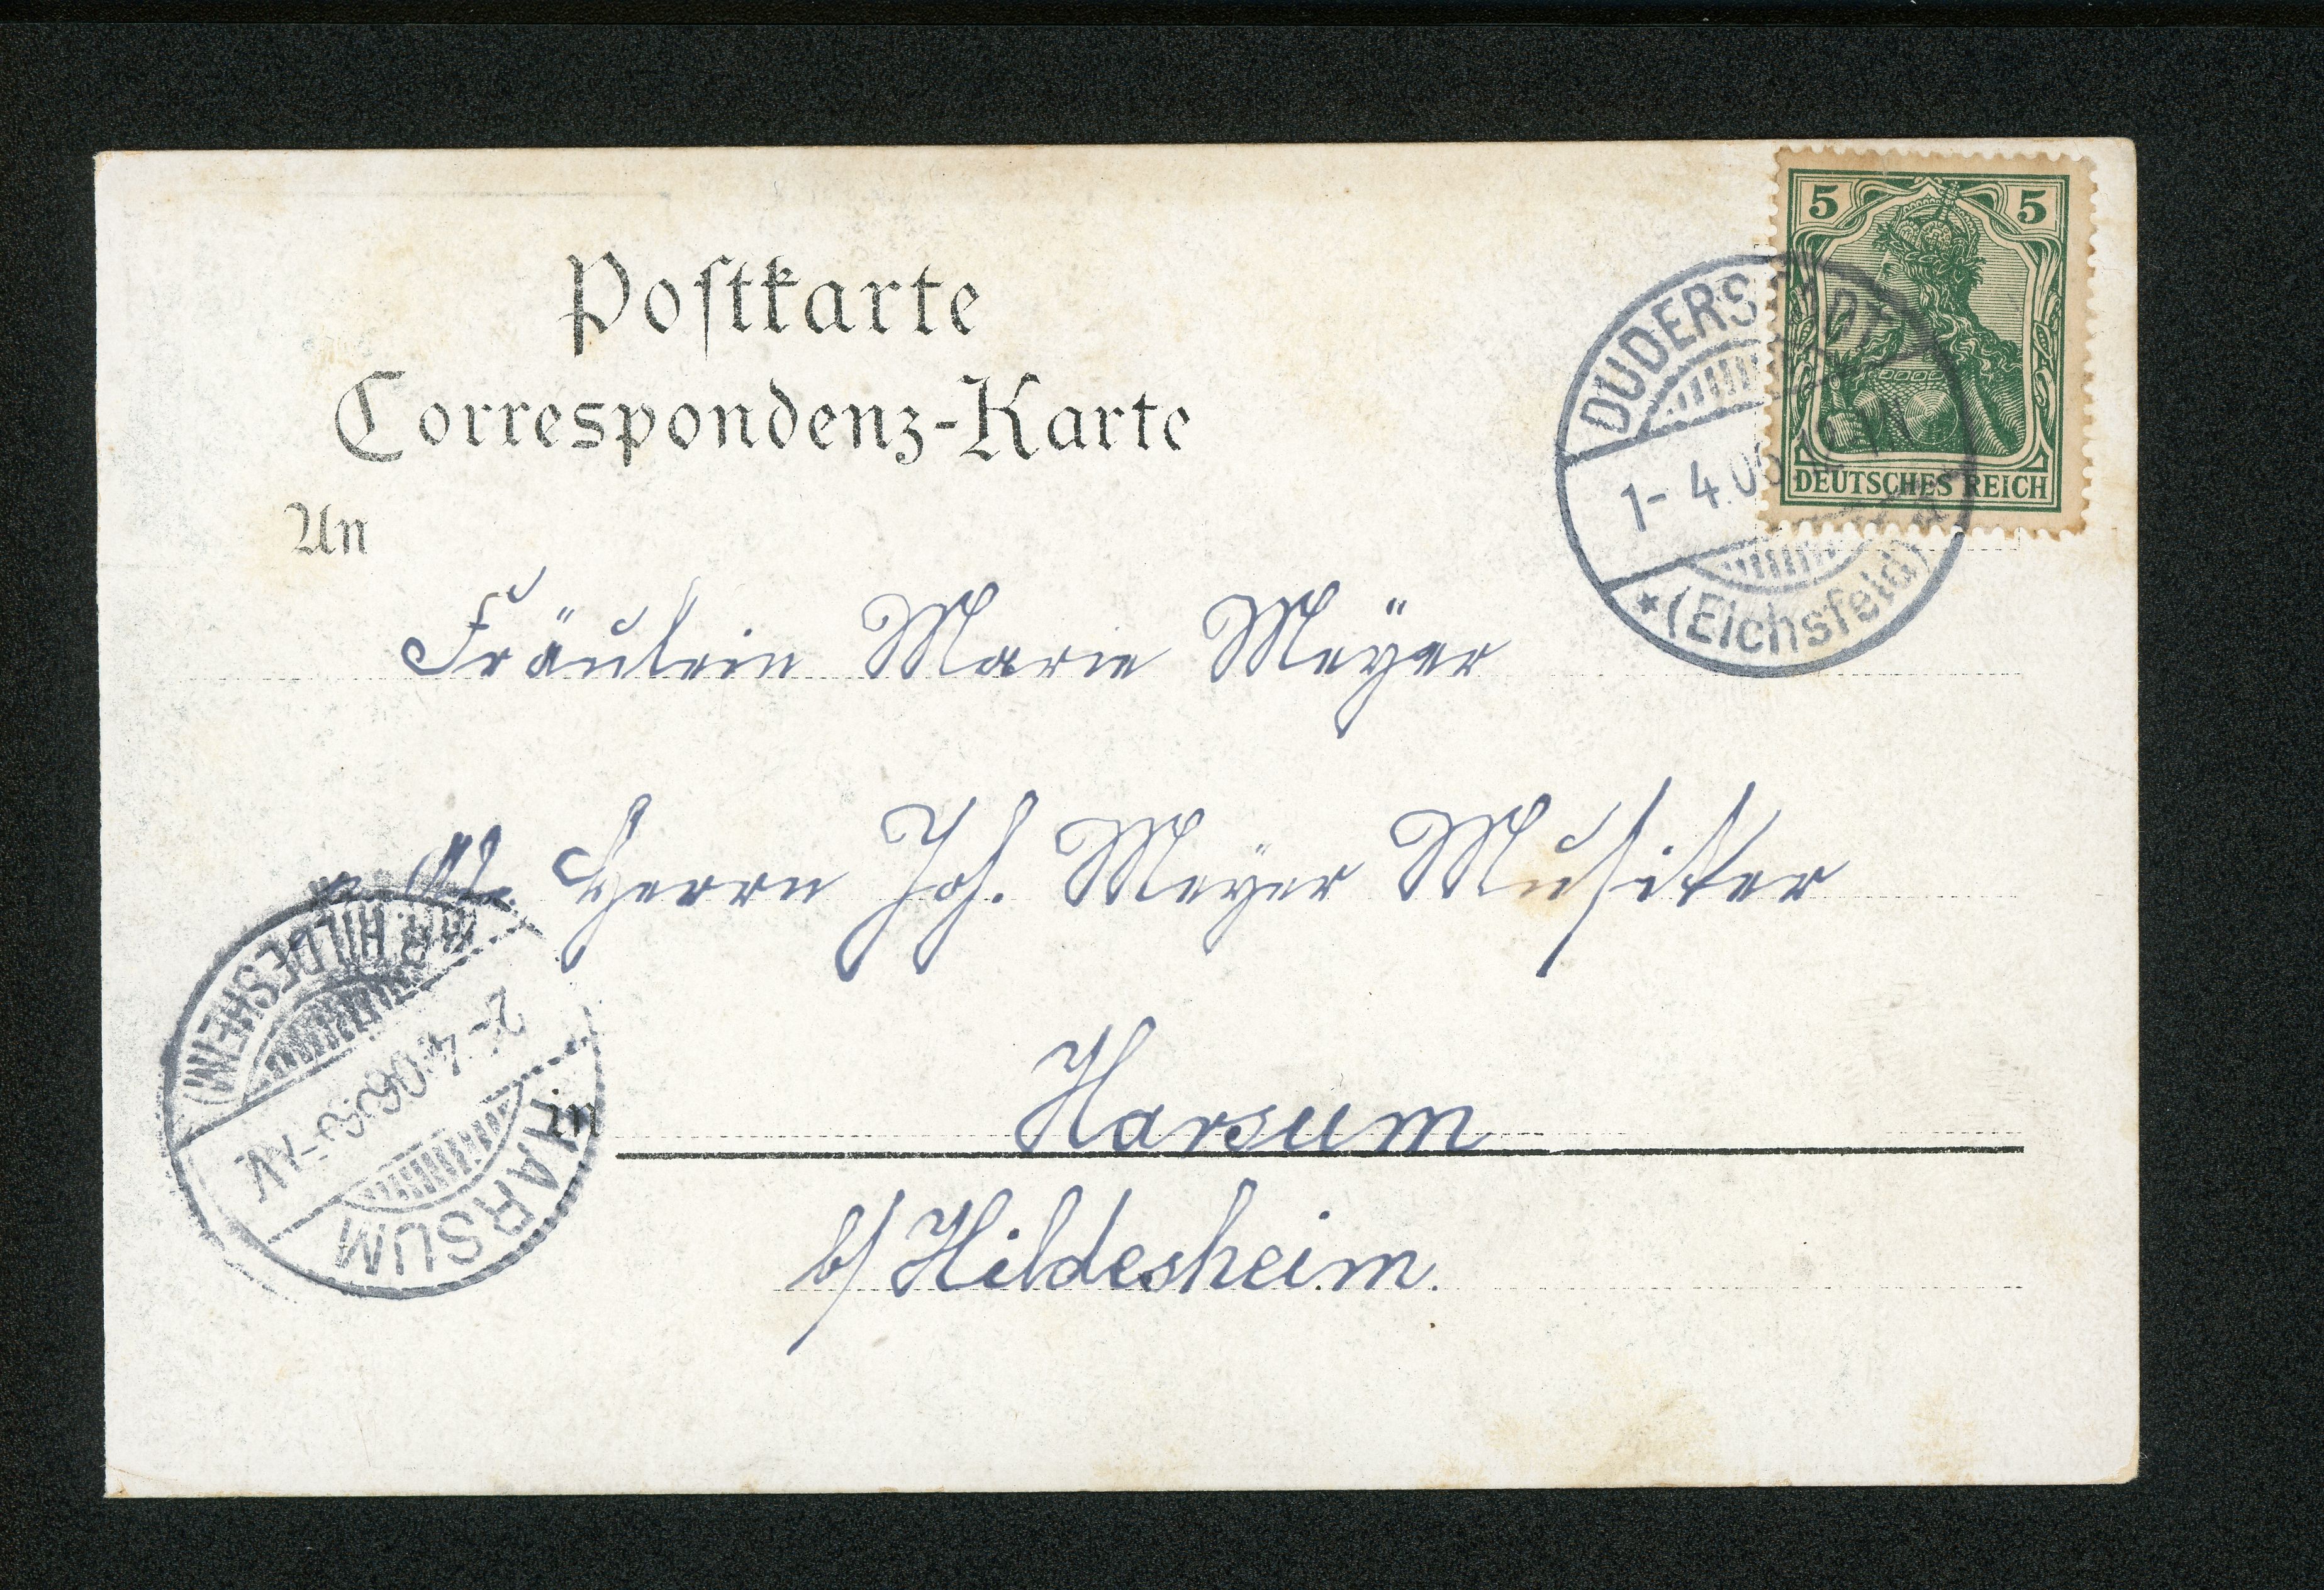 Postkarte
Correspondenz-Karte
An
5 5
DEUTSCHES REICH
DUDERSTADT
1-4.06
* (Eichsfeld)
Fräulein Marie Meÿer
Herrn Joh. Meyer Musiker
in Harsum
b/ Hildesheim.
HARSUM
2-4.06
HILDESHEIM